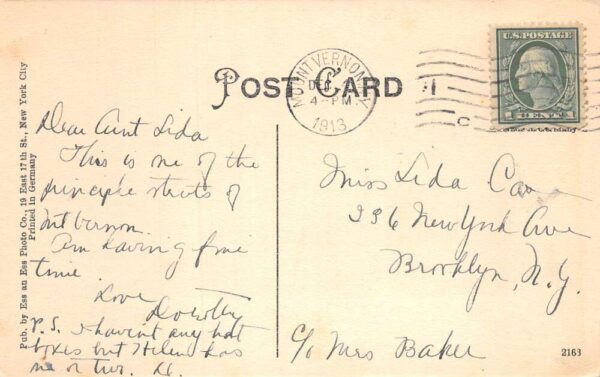 POST CARD
Pub. by Ess an Ess Photo Co., 19 East 17th St., New York City
Printed in Germany
MOUNT VERNON, N.Y.
DEC
4-PM
1913
U.S. POSTAGE
1 CENT 1
Dear Aunt Lida
This is one of the
principle streets of
Mt Vernon.
Am having fine
time
Love
Dorothy
P.S. I havin't any hat
boxes but Helen has
one or two. D.
Miss Lida
New York Ave
Brooklyn, N.Y.
c/o Mrs Baker
2163